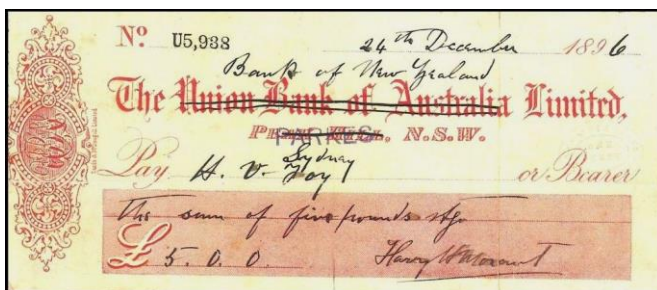 No. U5,938 24th December 1896
Bank of New Zealand
The Union Bank of Australia Limited,
PARKES N.S.W.
Sydney
Pay H. V. Foy or Bearer
The sum of five pounds stg
£ 5. 0. 0. Harry H Morant